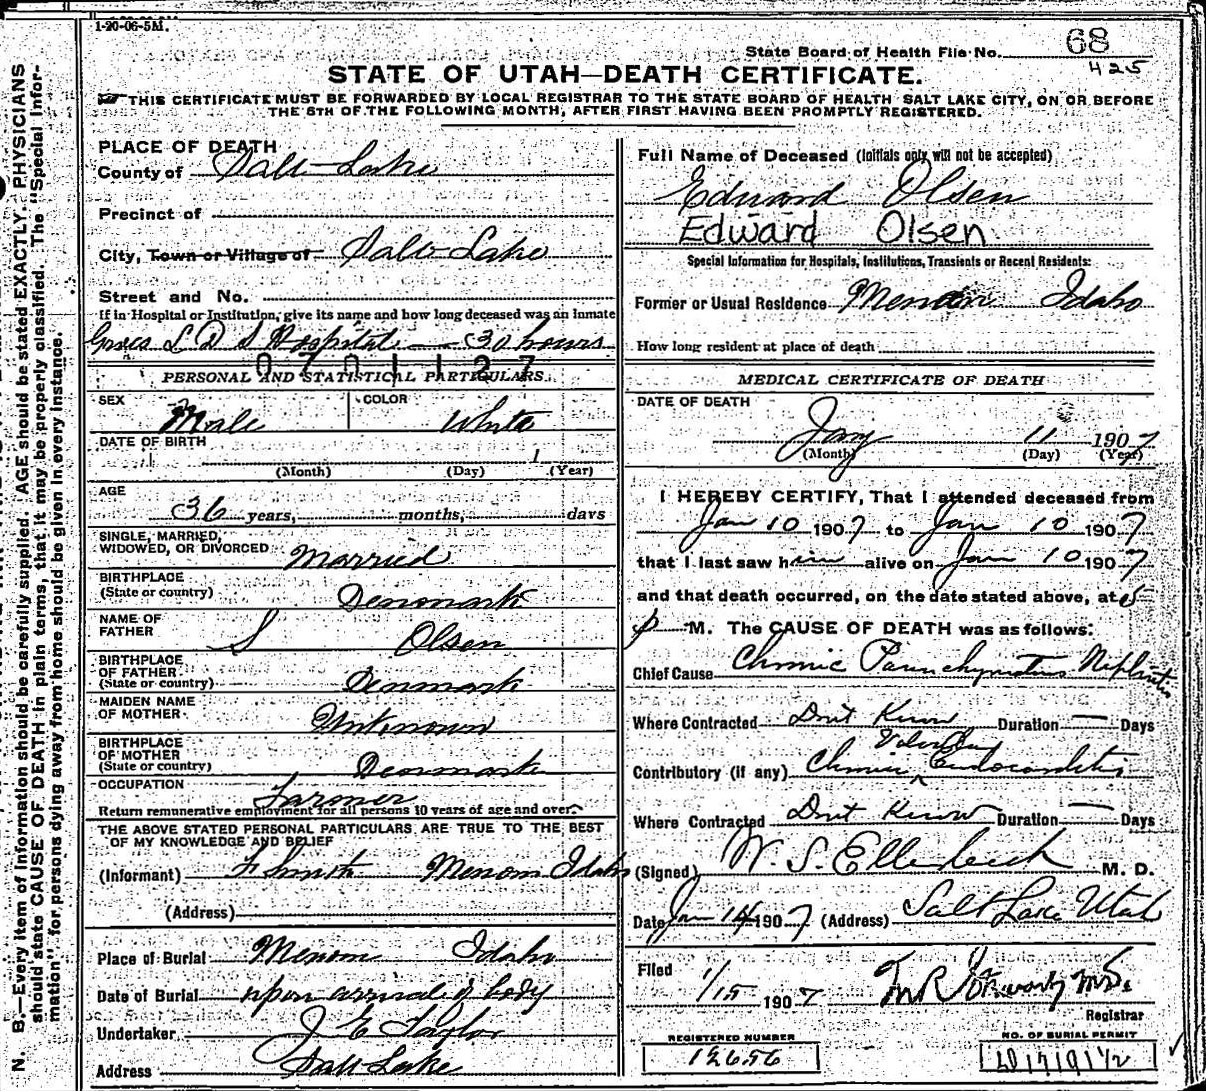 1-20-06-5M.
State Board of Health File No. 68
425
STATE OF UTAH—DEATH CERTIFICATE.
THIS CERTIFICATE MUST BE FORWARDED BY LOCAL REGISTRAR TO THE STATE BOARD OF HEALTH SALT LAKE CITY, ON OR BEFORE
THE 5TH OF THE FOLLOWING MONTH, AFTER FIRST HAVING BEEN PROMPTLY REGISTERED.
N. B.—Every item of information should be carefully supplied. AGE should be stated EXACTLY. PHYSICIANS
should state CAUSE OF DEATH in plain terms, that it may be properly classified. The "Special Infor-
mation" for persons dying away from home should be given in every instance.
PLACE OF DEATH
County of Salt Lake
Precinct of
City, Town or Village of Salt Lake
Street and No.
If in Hospital or Institution, give its name and how long deceased was an Inmate
L D S Hospital — 30 hours
0701127
PERSONAL AND STATISTICAL PARTICULARS.
SEX Male COLOR White
DATE OF BIRTH
(Month) (Day) 1 (Year)
AGE
36 years, months, days
SINGLE, MARRIED,
WIDOWED, OR DIVORCED Married
BIRTHPLACE
(State or country) Denmark
NAME OF
FATHER S Olsen
BIRTHPLACE
OF FATHER
(State or country) Denmark
MAIDEN NAME
OF MOTHER Unknown
BIRTHPLACE
OF MOTHER
(State or country) Denmark
OCCUPATION Farmer
Return remunerative employment for all persons 10 years of age and over.
THE ABOVE STATED PERSONAL PARTICULARS ARE TRUE TO THE BEST
OF MY KNOWLEDGE AND BELIEF
(Informant) F Smith Menan Idaho
(Address)
Place of Burial Menan Idaho
Date of Burial upon arrival of body
Undertaker J E Taylor
Address Salt Lake
Full Name of Deceased (Initials only will not be accepted)
Edward Olsen
Edward Olsen
Special Information for Hospitals, Institutions, Transients or Recent Residents:
Former or Usual Residence Menan Idaho
How long resident at place of death
MEDICAL CERTIFICATE OF DEATH
DATE OF DEATH
Jany 11 1907
(Month) (Day) (Year)
I HEREBY CERTIFY, That I attended deceased from
Jan 10 1907 to Jan 10 1907
that I last saw him alive on Jan 10 1907
and that death occurred, on the date stated above, at 5
p M. The CAUSE OF DEATH was as follows:
Chief Cause Chronic Parenchymatous Nephritis
Where Contracted Dont Know Duration — Days
Valvular
Contributory (if any) Chronic Endocarditis
Where Contracted Dont Know Duration — Days
(Signed) W. S. Ellerbeck M. D.
Date Jan 14 1907 (Address) Salt Lake Utah
Filed 1/15 1907
Registrar
REGISTERED NUMBER
12656
NO. OF BURIAL PERMIT